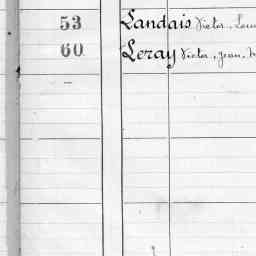 53 Landais Victor, Loui
60 Leray Victor, Jean,